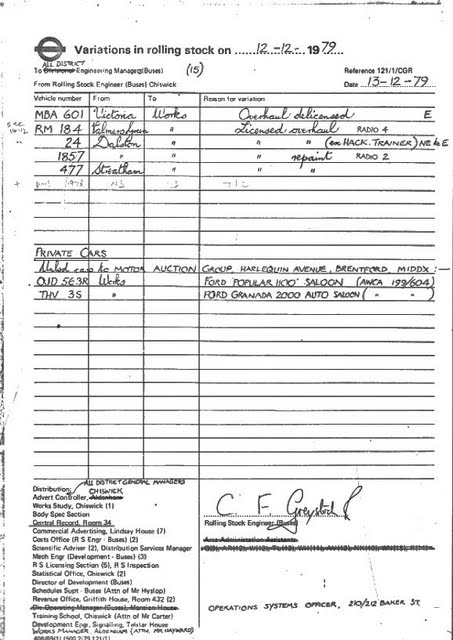 Variations in rolling stock on 12-12- 1979
ALL DISTRICT
To Divisional Engineering Managers (Buses) (15)
Reference 121/1/CGR
From Rolling Stock Engineer (Buses) Chiswick
Date 13-12-79
Vehicle number From To Reason for variation
MBA 601 Victoria Works Overhaul delicensed E
RM 184 Palmers Green " Licensed overhaul RADIO 4
24 Dalston " " " (ex HACK. TRAINER) NE to E
1857 " " " repaint RADIO 2
477 Streatham " " "
PRIVATE CARS
cars to MOTOR AUCTION GROUP, HARLEQUIN AVENUE, BRENTFORD, MIDDX:—
OJD 563R Works FORD POPULAR 1100 SALOON (AWCA 199/604)
THV 3S " FORD GRANADA 2000 AUTO SALOON ( " " )
ALL DISTRICT GENERAL MANAGERS
Distribution: CHISWICK
Advert Controller, Aldenham
Works Study, Chiswick (1)
Body Spec Section
Central Record, Room 34
Commercial Advertising, Lindsay House (7)
Costs Office (R S Engr - Buses) (2)
Scientific Adviser (2), Distribution Services Manager
Mech Engr (Development - Buses) (3)
R S Licensing Section (5), R S Inspection
Statistical Office, Chiswick (2)
Director of Development (Buses)
Schedules Supt - Buses (Attn of Mr Hyslop)
Revenue Office, Griffith House, Room 432 (2)
Div Operating Manager (Buses), Mansion House
Training School, Chiswick (Attn of Mr Carter)
Development Engr, Signalling, Telstar House
WORKS MANAGER, ALDENHAM (ATTN. MR HAYWARD)
C F
Rolling Stock Engineer (Buses)
Area Administration Assistants
OPERATIONS SYSTEMS OFFICER, 210/212 BAKER ST.